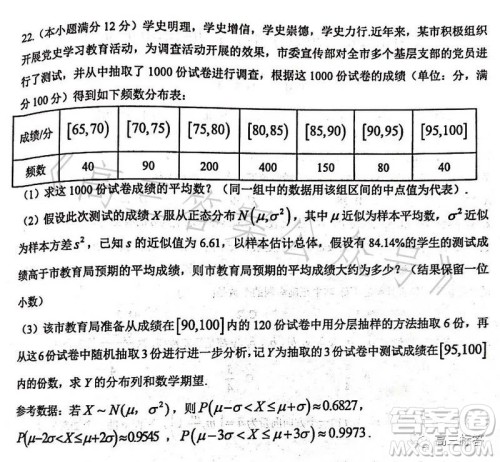 22.（本小题满分12分）学史明理，学史增信，学史崇德，学史力行.近年来，某市积极组织
开展党史学习教育活动，为调查活动开展的效果，市委宣传部对全市多个基层支部的党员进
行了测试，并从中抽取了1000份试卷进行调查，根据这1000份试卷的成绩（单位：分，满
分100分）得到如下频数分布表：
成绩/分 [65,70) [70,75) [75,80) [80,85) [85,90) [90,95) [95,100]
频数 40 90 200 400 150 80 40
（1）求这1000份试卷成绩的平均数？（同一组中的数据用该组区间的中点值为代表）.
（2）假设此次测试的成绩X服从正态分布N(μ,σ²)，其中μ近似为样本平均数，σ²近似
为样本方差s²，已知s的近似值为6.61，以样本估计总体，假设有84.14%的学生的测试成
绩高于市教育局预期的平均成绩，则市教育局预期的平均成绩大约为多少？（结果保留一位
小数）
（3）该市教育局准备从成绩在[90,100]内的120份试卷中用分层抽样的方法抽取6份，再
从这6份试卷中随机抽取3份进行进一步分析，记Y为抽取的3份试卷中测试成绩在[95,100]
内的份数，求Y的分布列和数学期望.
参考数据：若X~N(μ，σ²)，则P(μ-σ<X≤μ+σ)≈0.6827，
P(μ-2σ<X≤μ+2σ)≈0.9545，P(μ-3σ<X≤μ+3σ)≈0.9973.
《高三答案公众号》